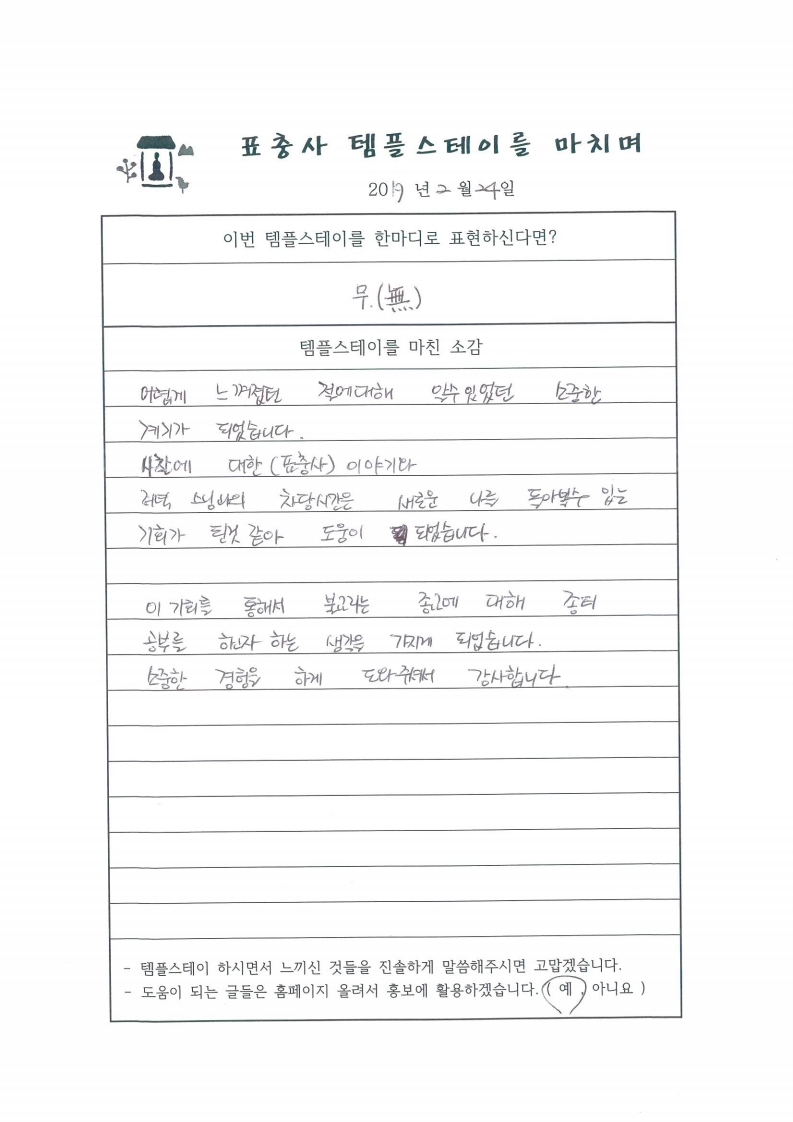 표충사 템플스테이를 마치며
2019 년 2 월 24일
이번 템플스테이를 한마디로 표현하신다면?
무.(無)
템플스테이를 마친 소감
어렵게 느껴졌던 절에대해 알수있었던 소중한
계기가 되었습니다.
사찰에 대한 (표충사) 이야기와
저녁 스님과의 차담시간은 새로운 나를 돌아볼수 있는
기회가 된것 같아 도움이 되었습니다.
이 기회를 통해서 불교라는 종교에 대해 좀더
공부를 하고자 하는 생각을 가지게 되었습니다.
소중한 경험을 하게 도와주셔서 감사합니다.
- 템플스테이 하시면서 느끼신 것들을 진솔하게 말씀해주시면 고맙겠습니다.
- 도움이 되는 글들은 홈페이지 올려서 홍보에 활용하겠습니다. ( 예 , 아니요 )